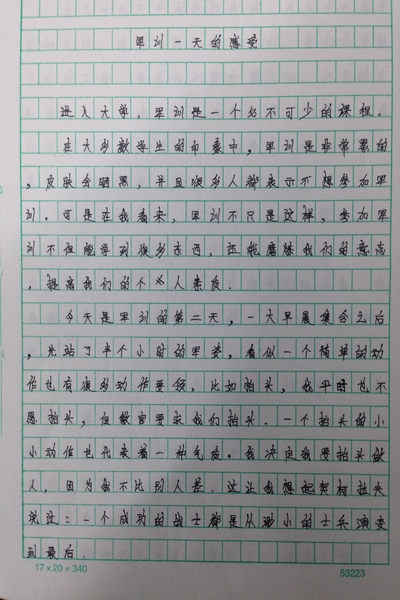 军训一天的感受
进入大学，军训是一个必不可少的课程。
在大多数学生的印象中，军训是非常累的
，皮肤会晒黑，并且很多人都表示不想参加军
训。可是在我看来，军训不只是这样，参加军
训不但能学到很多东西，还能磨炼我们的意志
，提高我们的个人素质。
今天是军训的第二天，一大早晨集合之后
，先站了半个小时的军姿，看似一个简单的动
作也有很多动作要领，比如抬头，我平时也不
愿抬头，但教官要求我们抬头。一个抬头的小
小动作也代表着一种气质，我决定我要抬头做
人，因为我不比别人差。这让我想起契柯拉夫
说过：一个成功的战士都是从渺小的士兵演变
到最后。
17×20=340
53223